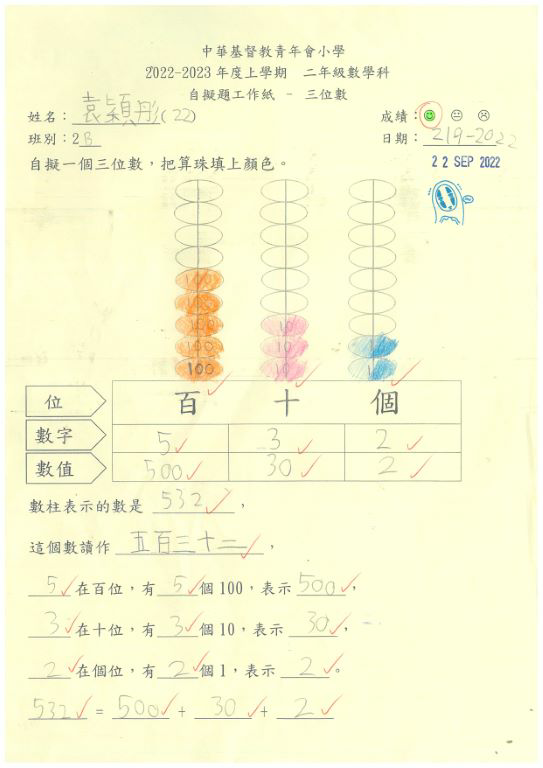 中華基督教青年會小學
2022-2023 年度上學期 二年級數學科
自擬題工作紙 - 三位數
姓名：袁穎彤(22) 成績：
班別：2B 日期：219-2022
22 SEP 2022
自擬一個三位數，把算珠填上顏色。
100
100
100 10
100 10 1
100 10 1
位 百 十 個
數字 5 3 2
數值 500 30 2
數柱表示的數是 532，
這個數讀作 五百三十二，
5 在百位，有 5 個 100，表示 500，
3 在十位，有 3 個 10，表示 30，
2 在個位，有 2 個 1，表示 2。
532 = 500 + 30 + 2